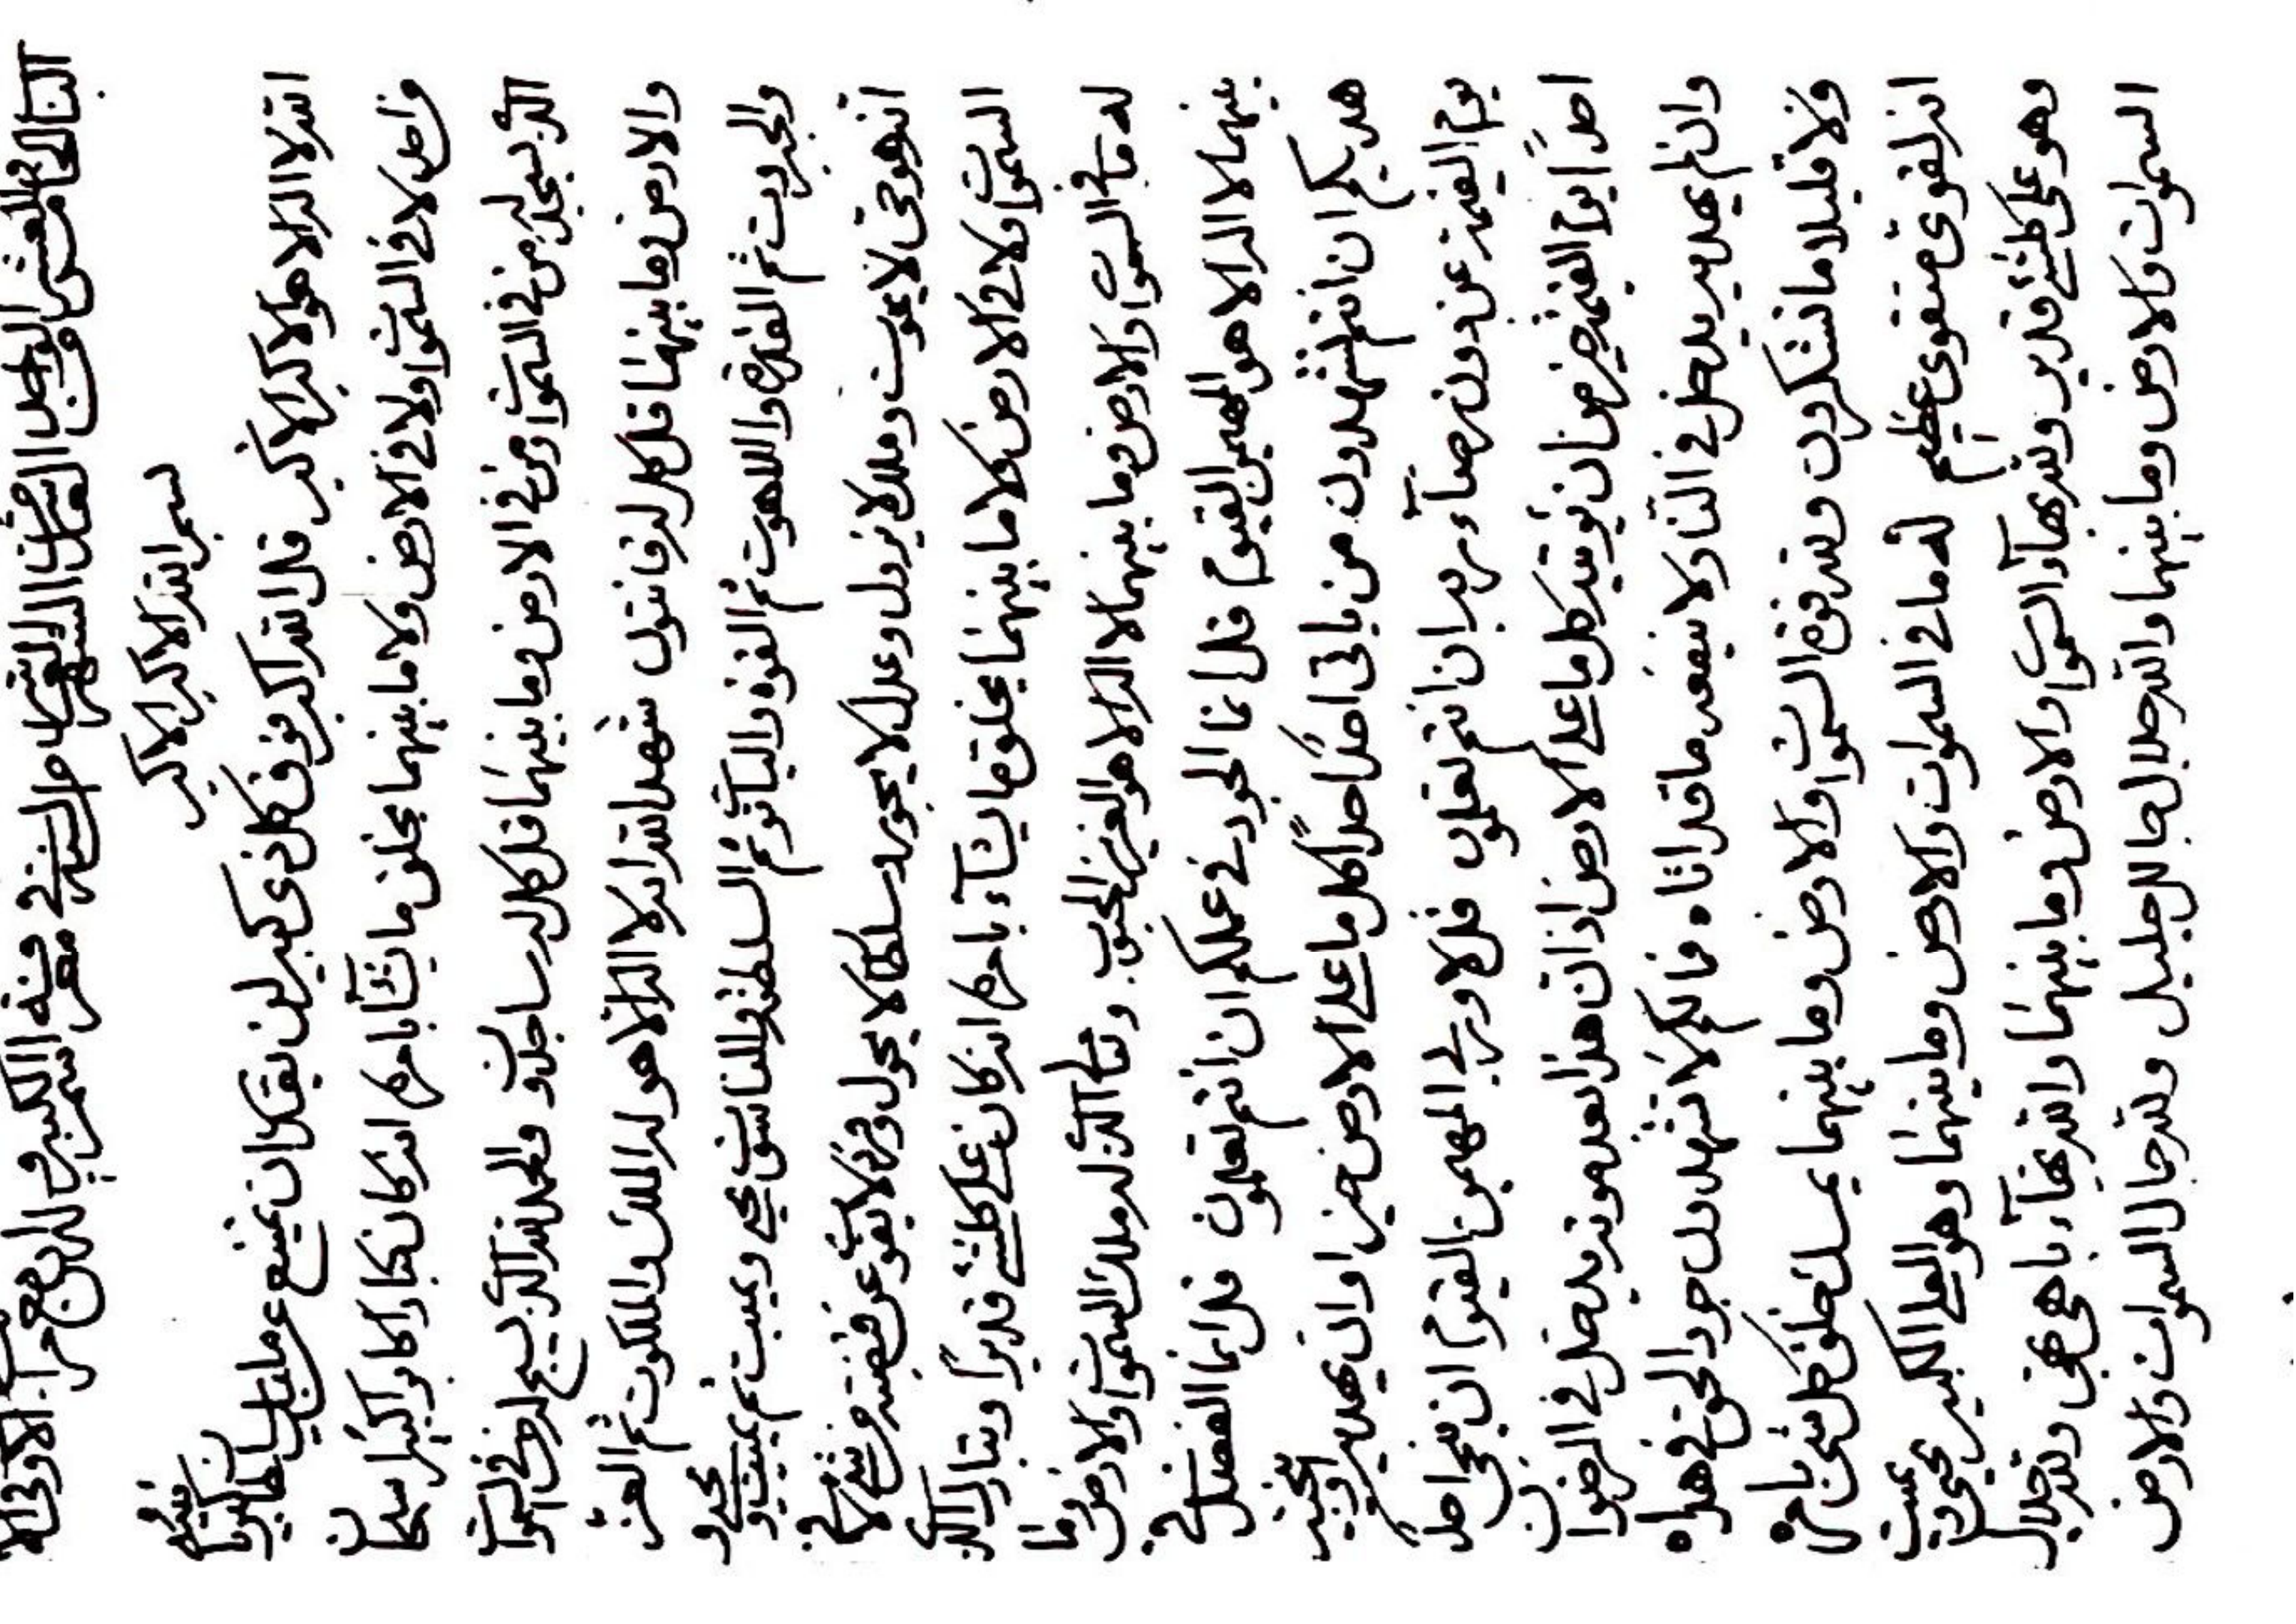 بسم الله الاكبر الاكبر
انه لا اله الا هو الاكبر الاكبر قل الله اكبر فوق كل ذي كبير لن يقدر ان يمتنع عن مليك سلطان كبريائه من
احد لا في السموات ولا في الارض ولا ما بينهما يخلق ما يشآء بامره انه كان كبارا كابرا كبيرا سبحان
الذي يسجد له من في السموات ومن في الارض وما بينهما قل كل له ساجدون والحمد لله الذي يسبح له من في السموات
والارض وما بينهما قل كل له قانتون شهد الله انه لا اله الا هو له الملك والملكوت ثم العز
والجبروت ثم القدرة واللاهوت ثم القوة والياقوت ثم السلطنة والناسوت يحيي ويميت ثم يميت ويحيي و
انه هو حي لا يموت وملك لا يزول وعدل لا يجور وسلطان لا يحول وفرد لا يفوت عن قبضته من شيء لا في
السموات ولا في الارض ولا ما بينهما يخلق ما يشآء بامره انه كان على كلشيء قديرا وتبارك الذي
له ما في السموات والارض وما بينهما لا اله الا هو العزيز المحبوب وتعالى الذي له ملك السموات والارض وما
بينهما لا اله الا هو المهيمن القيوم قل انما الجود في عملكم ان انتم تعلمون قل انما الفضل في
هديكم ان انتم تشهدون من ياتي احدا احدا كل ما على الارض خير او ان يهديه
يوم القيمة عن دون رضآء ربه ان انتم تعلمون قل لا وربي المهيمن القيوم ان ينجي احد
احدا يوم القيمة خير من ان يؤتيه كل ما على الارض اذ ان هذا بعد موته يدخل في الرضوان
وان لم يهديه يدخل في النار ولا ينفعه ما قد اتاه فما لكم لا تشهدون جود الحق في هداه
ولا قليلا ما تشكرون ولله فوق السموات والارض وما بينهما يمسك خلق كل شيء بامره
انه لقوي متقوي عظيم له ما في السموات والارض وما بينهما وهو العلي الكبير يحيي ويميت
وهو على كلشيء قدير ولله بهآء السموات والارض وما بينهما والله بهآء باهي بهي ولله جلال
السموات والارض وما بينهما والله جلال جالل جليل ولله جمال السموات والارض